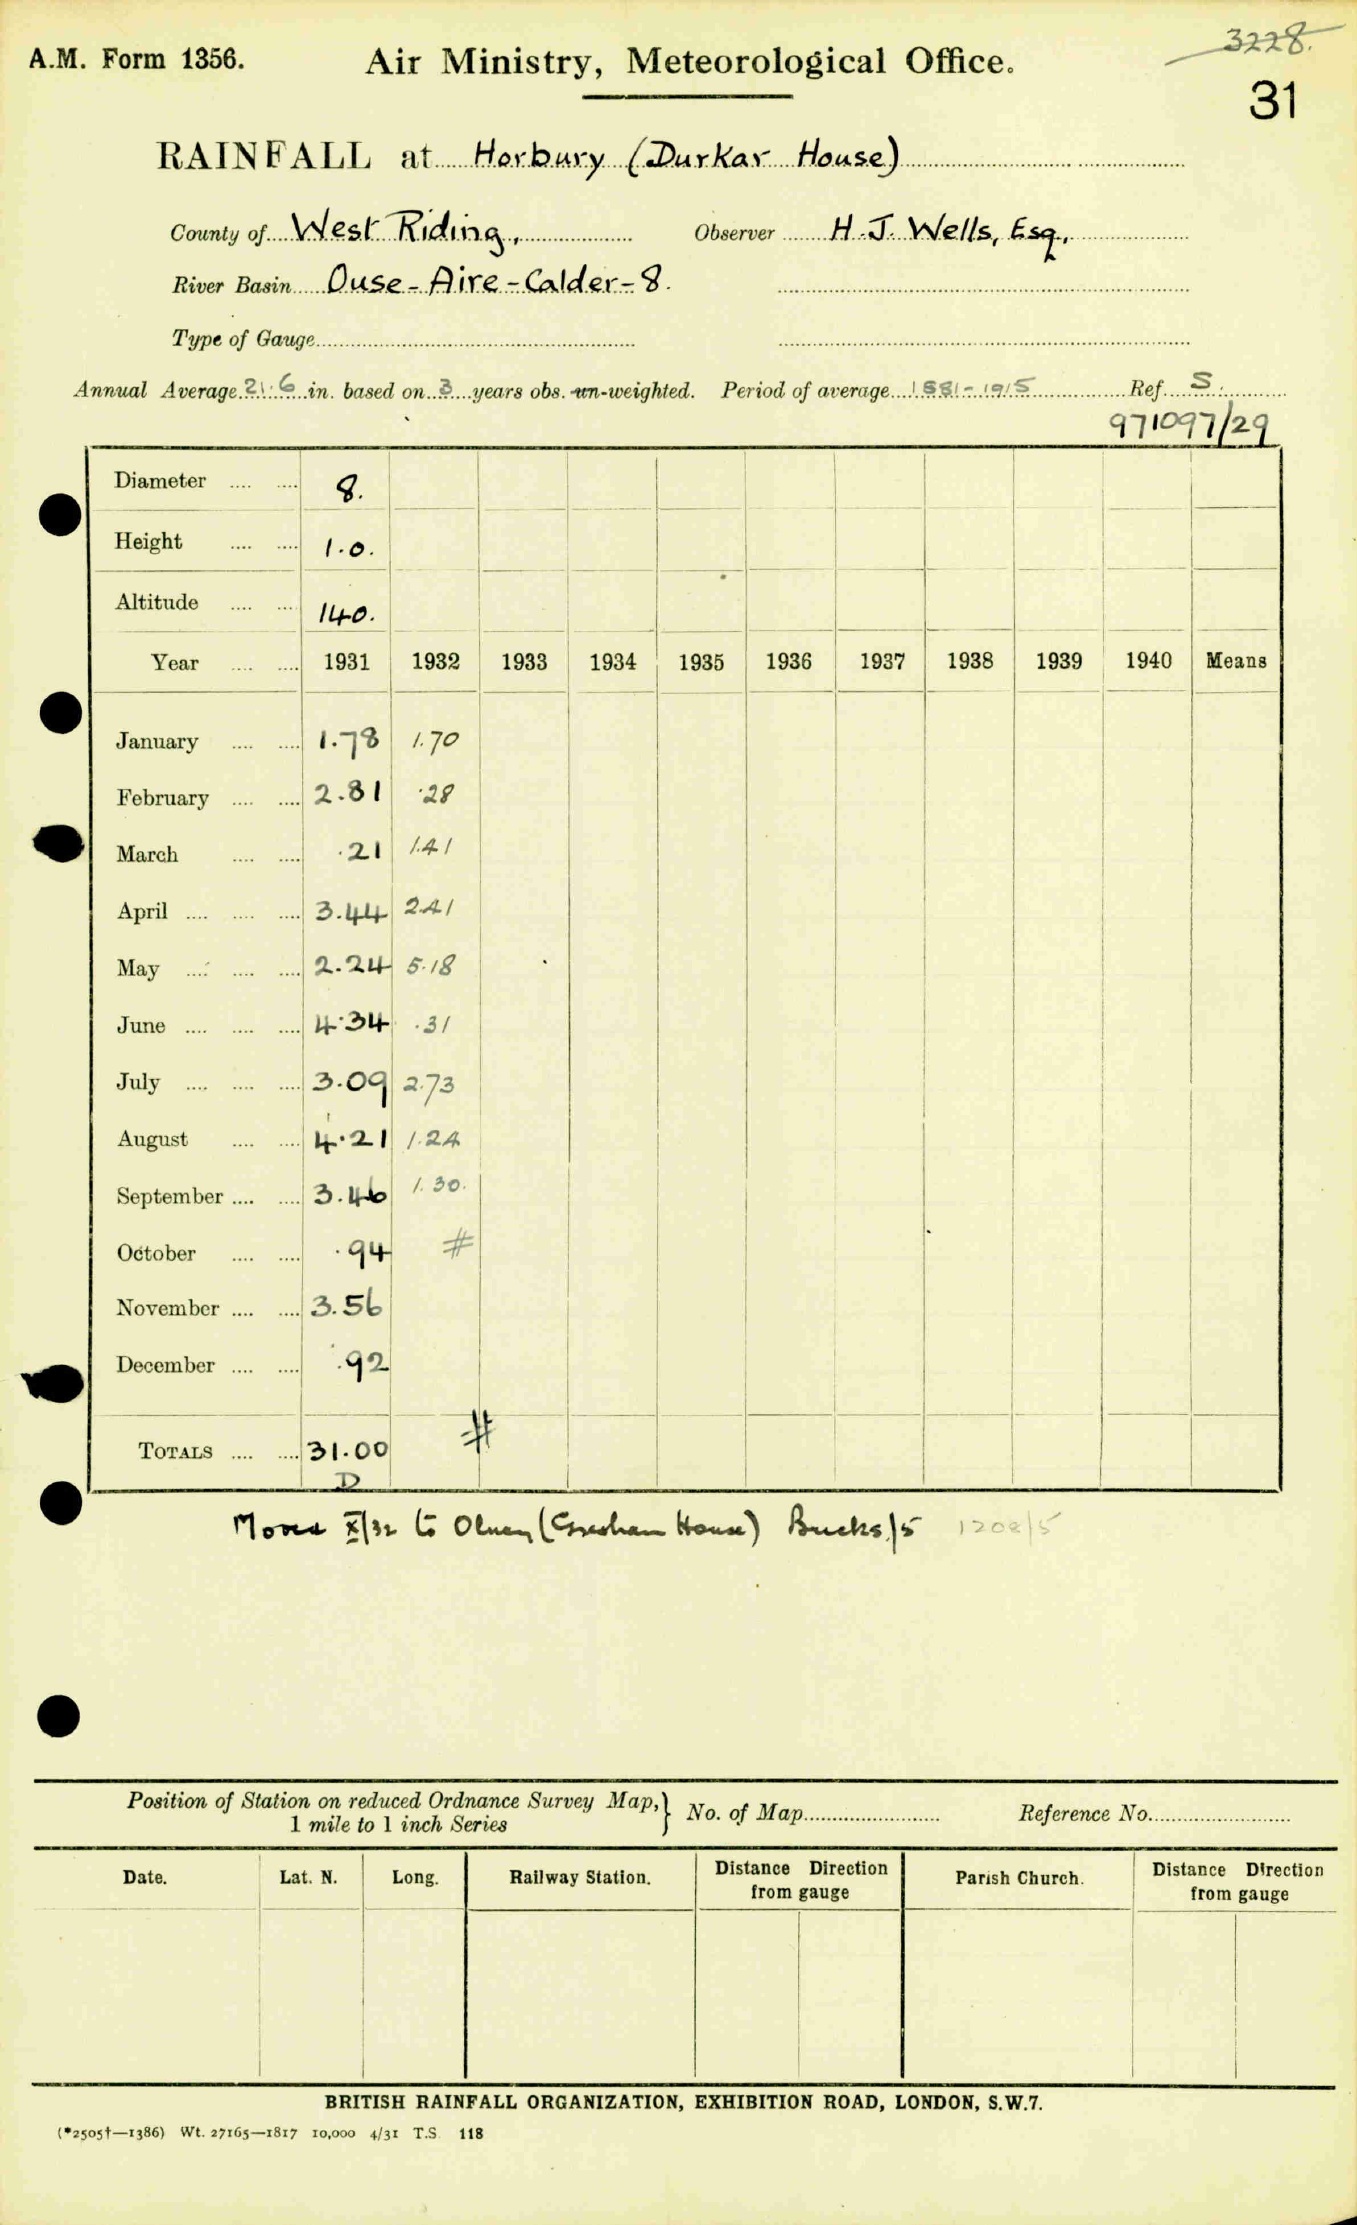 3228.
A.M. Form 1356. Air Ministry, Meteorological Office.
31
RAINFALL at Horbury (Durkar House)
County of West Riding, Observer H. J. Wells, Esq.,
River Basin Ouse - Aire - Calder - 8.
Type of Gauge
Annual Average 21.6 in. based on 3 years obs. un-weighted. Period of average 1881-1915 Ref. S.
971097/29
Diameter .... .... 8.
Height .... .... 1.0.
Altitude .... .... 140.
Year .... .... 1931 1932 1933 1934 1935 1936 1937 1938 1939 1940 Means
January .... .... 1.78 1.70
February .... .... 2.81 .28
March .... .... .21 1.41
April .... .... .... 3.44 2.41
May .... .... .... 2.24 5.18
June .... .... .... 4.34 .31
July .... .... .... 3.09 2.73
August .... .... 4.21 1.24
September .... .... 3.46 1.30.
October .... .... .94 #
November .... .... 3.56
December .... .... .92
TOTALS .... .... 31.00 #
D
Moved X/32 to Olney (Gresham House) Bucks/5 1208/5
Position of Station on reduced Ordnance Survey Map, } No. of Map Reference No.
1 mile to 1 inch Series
Date. Lat. N. Long. Railway Station. Distance Direction from gauge Parish Church. Distance Direction from gauge
BRITISH RAINFALL ORGANIZATION, EXHIBITION ROAD, LONDON, S.W.7.
(*2505†—1386) Wt. 27165—1817 10,000 4/31 T.S. 118